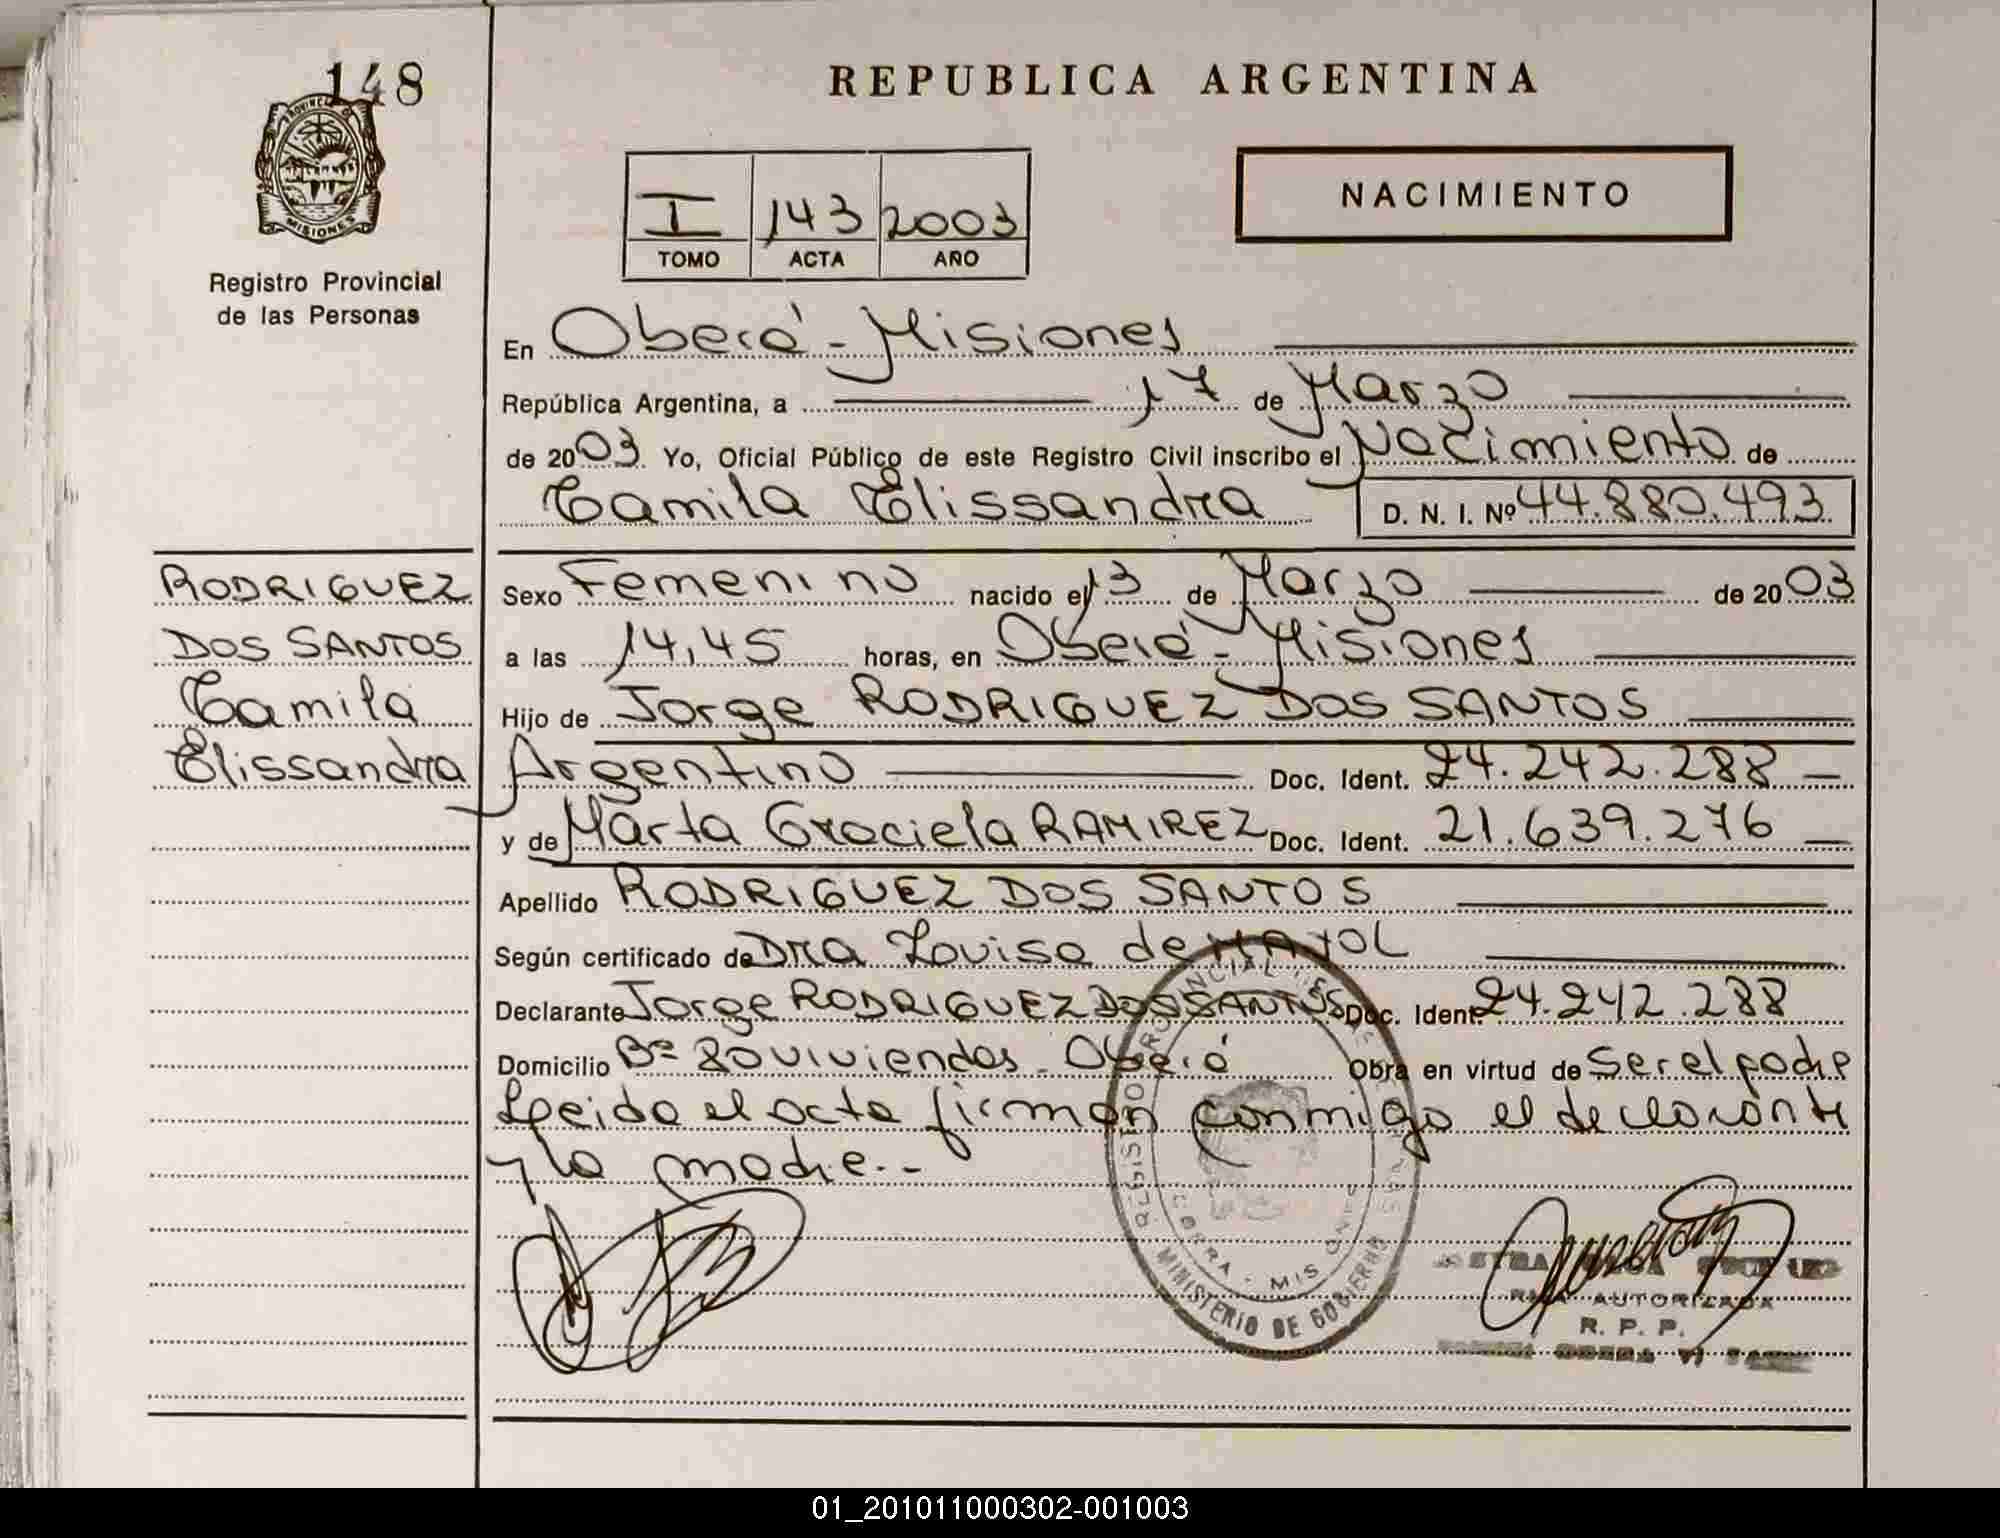 148
PROVINCIA DE
MISIONES
Registro Provincial
de las Personas
REPUBLICA ARGENTINA
I 143 2003
TOMO ACTA AÑO
NACIMIENTO
En Oberá - Misiones
República Argentina, a 17 de Marzo
de 2003. Yo, Oficial Público de este Registro Civil inscribo el Nacimiento de
Camila Elissandra D. N. I. Nº 44.880.493
RODRIGUEZ
DOS SANTOS
Camila
Elissandra
Sexo Femenino nacido el 13 de Marzo de 2003
a las 14,45 horas, en Oberá - Misiones
Hijo de Jorge RODRIGUEZ DOS SANTOS
Argentino Doc. Ident. 24.242.288
y de Marta Graciela RAMIREZ Doc. Ident. 21.639.276
Apellido RODRIGUEZ DOS SANTOS
Según certificado de Dra Louisa de MAYOL
Declarante Jorge RODRIGUEZ DOS SANTOS Doc. Ident. 24.242.288
Domicilio Bº 80 viviendas - Oberá Obra en virtud de Ser el padre
Leida el acta firman conmigo el declarante
y la madre.-
REGISTRO PROVINCIAL DE LAS
MINISTERIO DE GOBIERNO
OBERA - MISIONES
AUTORIZADA
R. P. P.
01_201011000302-001003